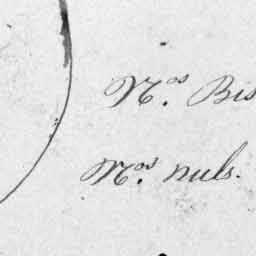 N.os Bis
N.os nuls.